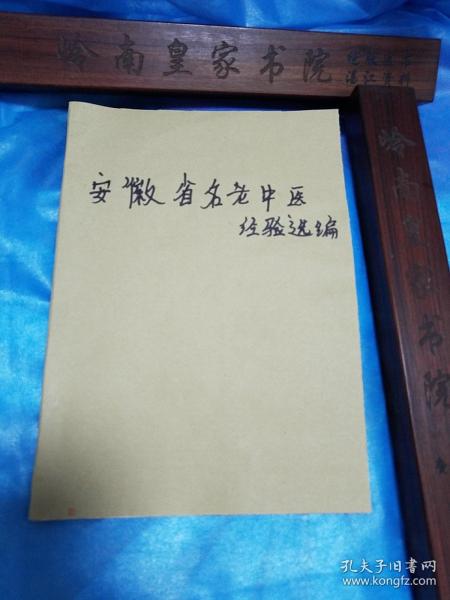 岭南皇家书院
安徽省名老中医
经验选编
岭南皇家书院
孔夫子旧书网
www.kongfz.com